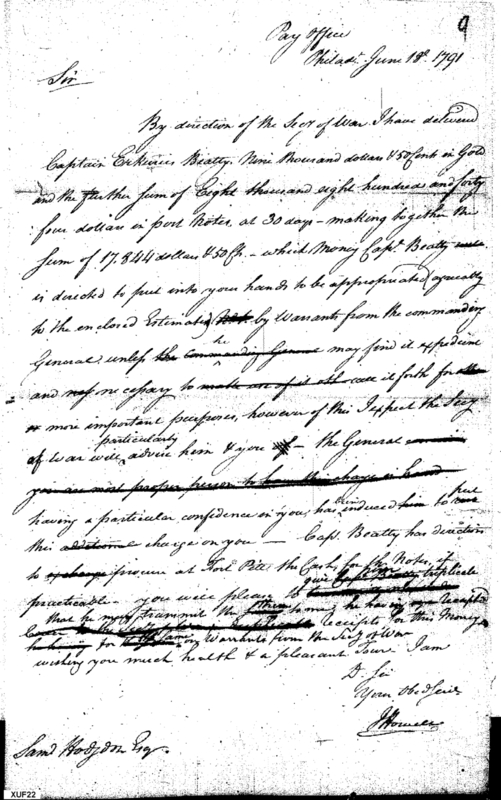 9
Pay Office
Philada. June 18th. 1791
Sir
By direction of the Secy of War I have delivered
Captain Erkuries Beatty, Nine thousand dollars & 50 Cents in Gold
and the further sum of Eight thousand eight hundred and forty
four dollars in post Notes, at 30 days - making together the
Sum of 17.844 dollars & 50 Cts. - which Money Capt. Beatty
is directed to put into your hands to be appropriated agreeably
to the enclosed Estimates, by Warrants from the commanding
General, unless the commanding General he may find it expedient
and necessary to call it forth for
more important purposes, however of this I expect the Secy
of War will particularly advise him & you - the General
you are most proper person to have the charge in hand
having a particular confidence in you, has induced him to
this additional charge on you - Capt. Beatty has direction
to exchange procure at Fort Pitt, the Cash, for the Notes, if
practicable - you will please to give Capt. Beatty triplicate
that he may transmit them to me, he having my
Receipts for this Money
on Warrants from the Secy of War
wishing you much health & a pleasant Tour I am
D. Sir
Your Obd Serv
J Howell
Saml Hodgdon Esqr.
XUF22